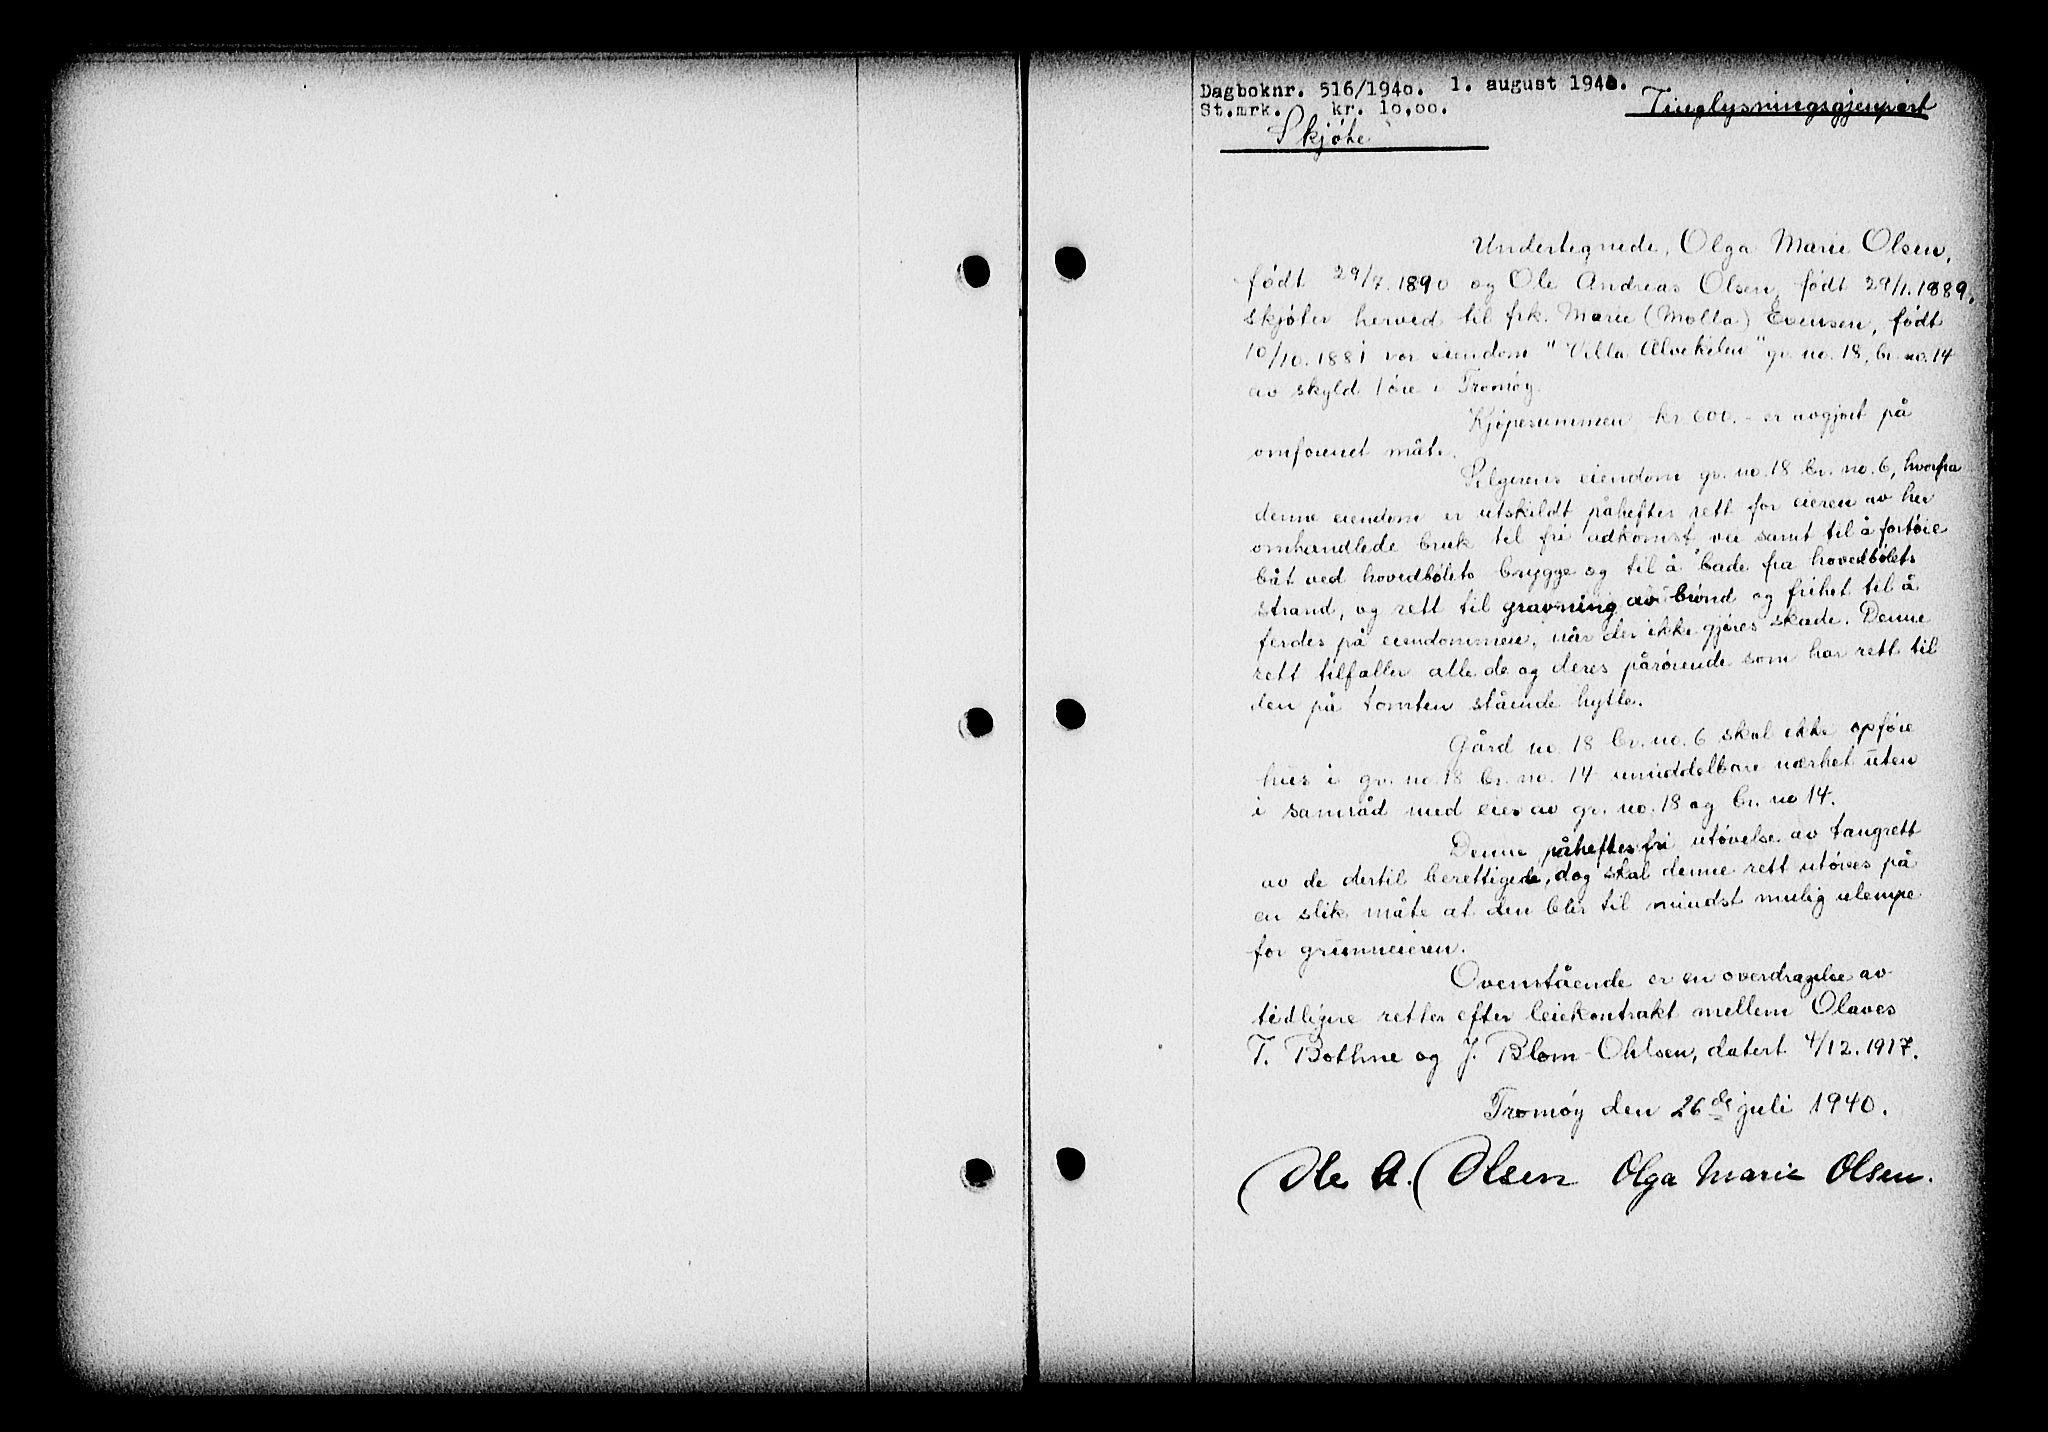 Dagboknr. 516/1940. 1. august 1940.
St.mrk. kr. 10,00.
Tinglysningsgjenpart
Skjøte
Undertegnede, Olga Marie Olsen,
født 29/7.1890 og Ole Andreas Olsen, født 29/1.1889,
skjøter herved til frk. Marie (Molla) Evensen, født
10/10.1881 vor eiendom "Villa Alvekilen" gr. no. 18, br. no. 14
av skyld 1 øre i Tromøy.
Kjøpesummen kr 600.- er avgjort på
omforenet måte.
Selgerens eiendom gr. no. 18 br. no. 6, hvorfra
denne eiendom er utskildt påhefter rett for eieren av her
omhandlede bruk til fri adkomst, vei samt til å fortøie
båt ved hovedbølets brygge og til å bade fra hovedbølets
strand, og rett til gravning av brønd og frihet til å
ferdes på eiendommen, når der ikke gjøres skade. Denne
rett tilfaller alle de og deres pårørende som har rett til
den på tomten stående hytte.
Gård no. 18 br. no. 6 skal ikke opføre
hus i gr. no. 18 br. no. 14 umiddelbare nærhet uten
i samråd med eier av gr. no. 18 og br. no 14.
Denne påheftes fri utøvelse av tangrett
av de dertil berettigede, dog skal denne rett utøves på
en slik måte at den blir til mindst mulig ulempe
for grunneieren.
Ovenstående er en overdragelse av
tidligere retter efter leiekontrakt mellem Olaves
T. Bothne og J. Blom-Ohlsen, datert 4/12.1917.
Tromøy den 26de juli 1940.
Ole A. Olsen Olga Marie Olsen.